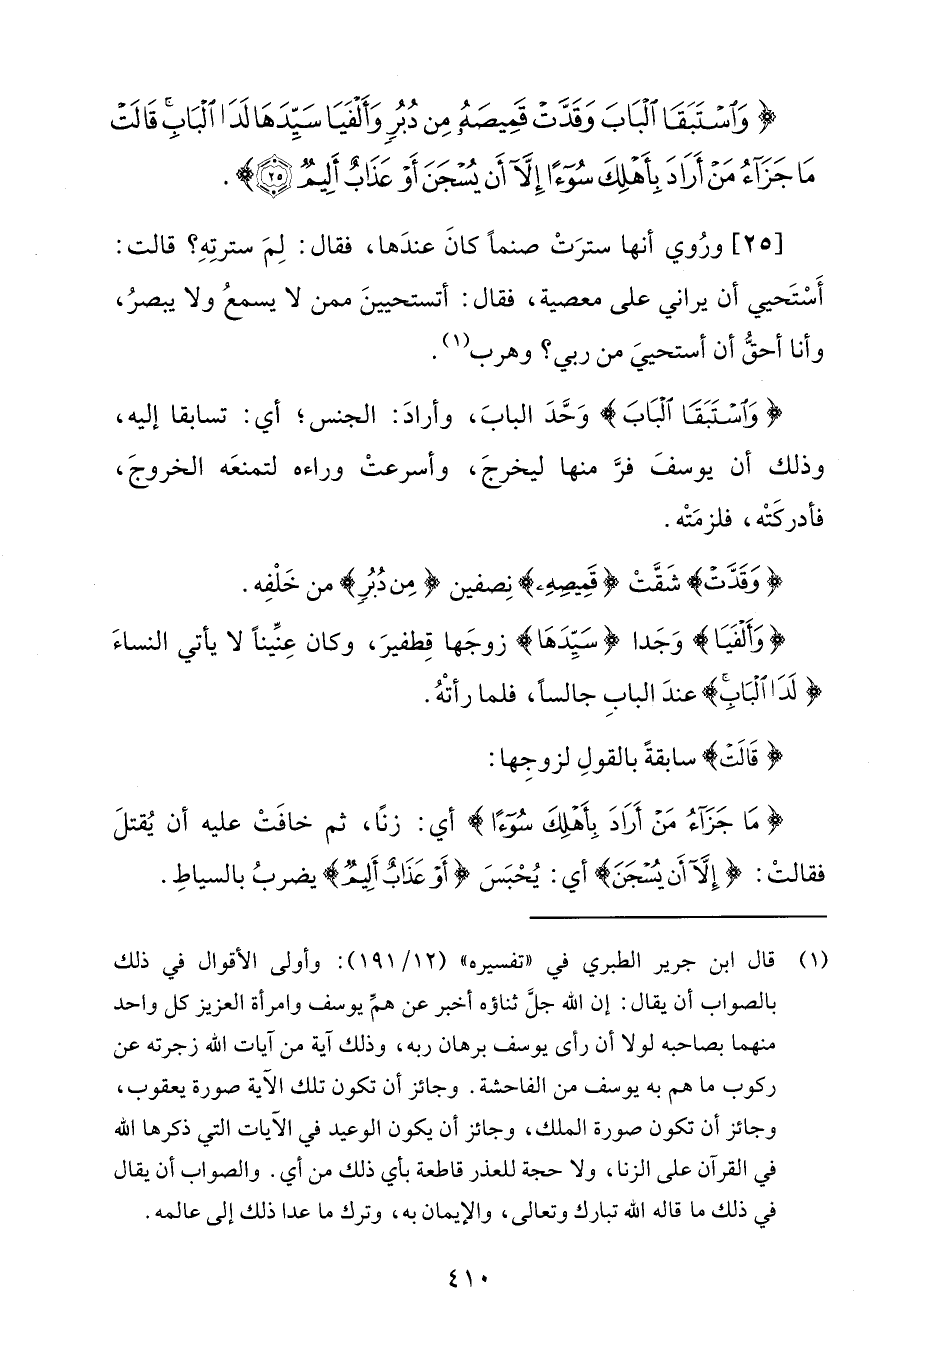 ﴿ وَٱسۡتَبَقَا ٱلۡبَابَ وَقَدَّتۡ قَمِيصَهُۥ مِن دُبُرٖ وَأَلۡفَيَا سَيِّدَهَا لَدَا ٱلۡبَابِۚ قَالَتۡ
مَا جَزَآءُ مَنۡ أَرَادَ بِأَهۡلِكَ سُوٓءًا إِلَّآ أَن يُسۡجَنَ أَوۡ عَذَابٌ أَلِيمٞ ۝٢٥﴾ .
[٢٥] ورُوي أنها سترَتْ صنماً كانَ عندَها، فقال: لِمَ سترتِهِ؟ قالت:
أَسْتَحيي أن يراني على معصية، فقال: أتستحيينَ ممن لا يسمعُ ولا يبصرُ،
وأنا أحقُّ أن أستحييَ من ربي؟ وهرب(١).
﴿ وَٱسۡتَبَقَا ٱلۡبَابَ ﴾ وَحَّدَ البابَ، وأرادَ: الجنس؛ أي: تسابقا إليه،
وذلك أن يوسفَ فرَّ منها ليخرجَ، وأسرعتْ وراءه لتمنعَه الخروجَ،
فأدركَتْه، فلزمَتْه.
﴿ وَقَدَّتۡ﴾ شقَّتْ ﴿ قَمِيصِهِۦ﴾ نِصفين ﴿ مِن دُبُرٖ﴾ من خَلْفِه.
﴿ وَأَلۡفَيَا ﴾ وَجَدا ﴿ سَيِّدَهَا ﴾ زوجَها قِطفيرَ، وكان عِنِّيناً لا يأتي النساءَ
﴿ لَدَا ٱلۡبَابِۚ﴾ عندَ البابِ جالساً، فلما رأتْهُ.
﴿ قَالَتۡ﴾ سابقةً بالقولِ لزوجِها:
﴿ مَا جَزَآءُ مَنۡ أَرَادَ بِأَهۡلِكَ سُوٓءًا ﴾ أي: زنًا، ثم خافَتْ عليه أن يُقتلَ
فقالتْ: ﴿ إِلَّآ أَن يُسۡجَنَ﴾ أي: يُحْبَسَ ﴿ أَوۡ عَذَابٌ أَلِيمٞ﴾ يضربُ بالسياطِ.
(١) قال ابن جرير الطبري في «تفسيره» (١٢/ ١٩١): وأولى الأقوال في ذلك
بالصواب أن يقال: إن الله جلَّ ثناؤه أخبر عن همِّ يوسف وامرأة العزيز كل واحد
منهما بصاحبه لولا أن رأى يوسف برهان ربه، وذلك آية من آيات الله زجرته عن
ركوب ما هم به يوسف من الفاحشة. وجائز أن تكون تلك الآية صورة يعقوب،
وجائز أن تكون صورة الملك، وجائز أن يكون الوعيد في الآيات التي ذكرها الله
في القرآن على الزنا، ولا حجة للعذر قاطعة بأي ذلك من أي. والصواب أن يقال
في ذلك ما قاله الله تبارك وتعالى، والإيمان به، وترك ما عدا ذلك إلى عالمه.
٤١٠